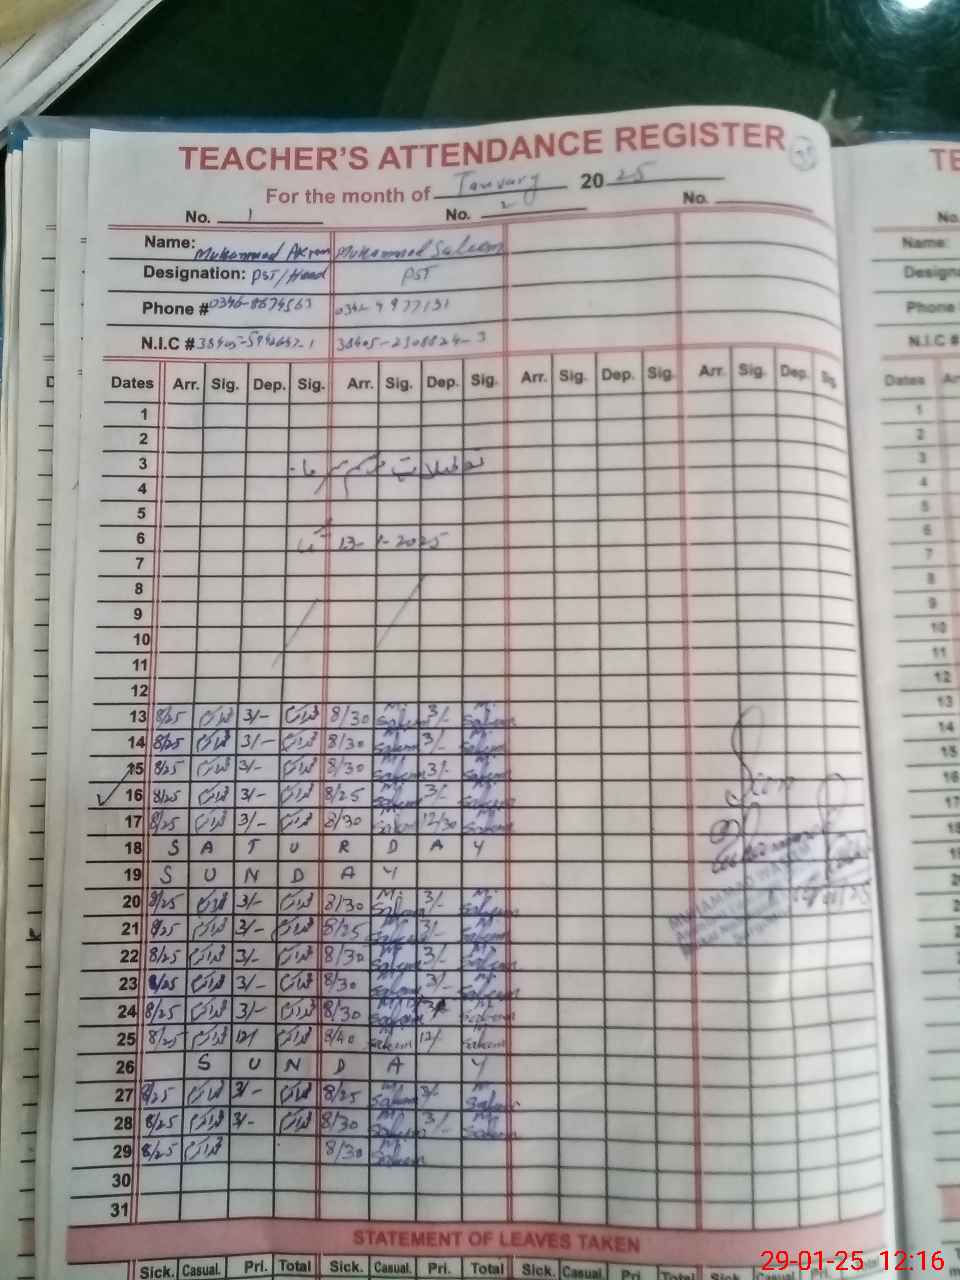 TEACHER'S ATTENDANCE REGISTER
For the month of January 2025
No. 1 No. 2 No.
Name: Muhammad Akram Muhammad Saleem
Designation: PST/Head PST
Phone # 0346-8674563 0342-4977131
N.I.C # 38405-2308824-3
Dates Arr. Sig. Dep. Sig. Arr. Sig. Dep. Sig. Arr. Sig. Dep. Sig. Arr. Sig. Dep. Sig.
1
2
3 تعطیلات موسم سرما
4
5
6 13-1-2025
7
8
9
10
11
12
13 8/25 اکرم 3/- اکرم 8/30 M. Saleem 3/- M. Saleem
14 8/25 اکرم 3/- اکرم 8/30 M. Saleem 3/- M. Saleem
15 8/25 اکرم 3/- اکرم 8/30 M. Saleem 3/- M. Saleem
16 8/25 اکرم 3/- اکرم 8/25 M. Saleem 3/- M. Saleem
17 8/25 اکرم 3/- اکرم 8/30 M. Saleem 12/30 M. Saleem
18 S A T U R D A Y
19 S U N D A Y
20 8/25 اکرم 3/- اکرم 8/30 M. Saleem 3/- M. Saleem
21 8/25 اکرم 3/- اکرم 8/25 M. Saleem 3/- M. Saleem
22 8/25 اکرم 3/- اکرم 8/30 M. Saleem 3/- M. Saleem
23 8/25 اکرم 3/- اکرم 8/30 M. Saleem 3/- M. Saleem
24 8/25 اکرم 3/- اکرم 8/30 M. Saleem 3/- M. Saleem
25 8/25 اکرم 12/ اکرم 8/40 M. Saleem 12/- M. Saleem
26 S U N D A Y
27 8/25 اکرم 3/- اکرم 8/25 M. Saleem 3/- M. Saleem
28 8/25 اکرم 3/- اکرم 8/30 M. Saleem 3/- M. Saleem
29 8/25 اکرم 8/30 M. Saleem
30
31
MUHAMMAD WASEEM
STATEMENT OF LEAVES TAKEN
Sick. Casual. Pri. Total Sick. Casual. Pri. Total Sick. Casual. Pri. Total Sick. Casual. Pri. Total
29-01-25 12:16